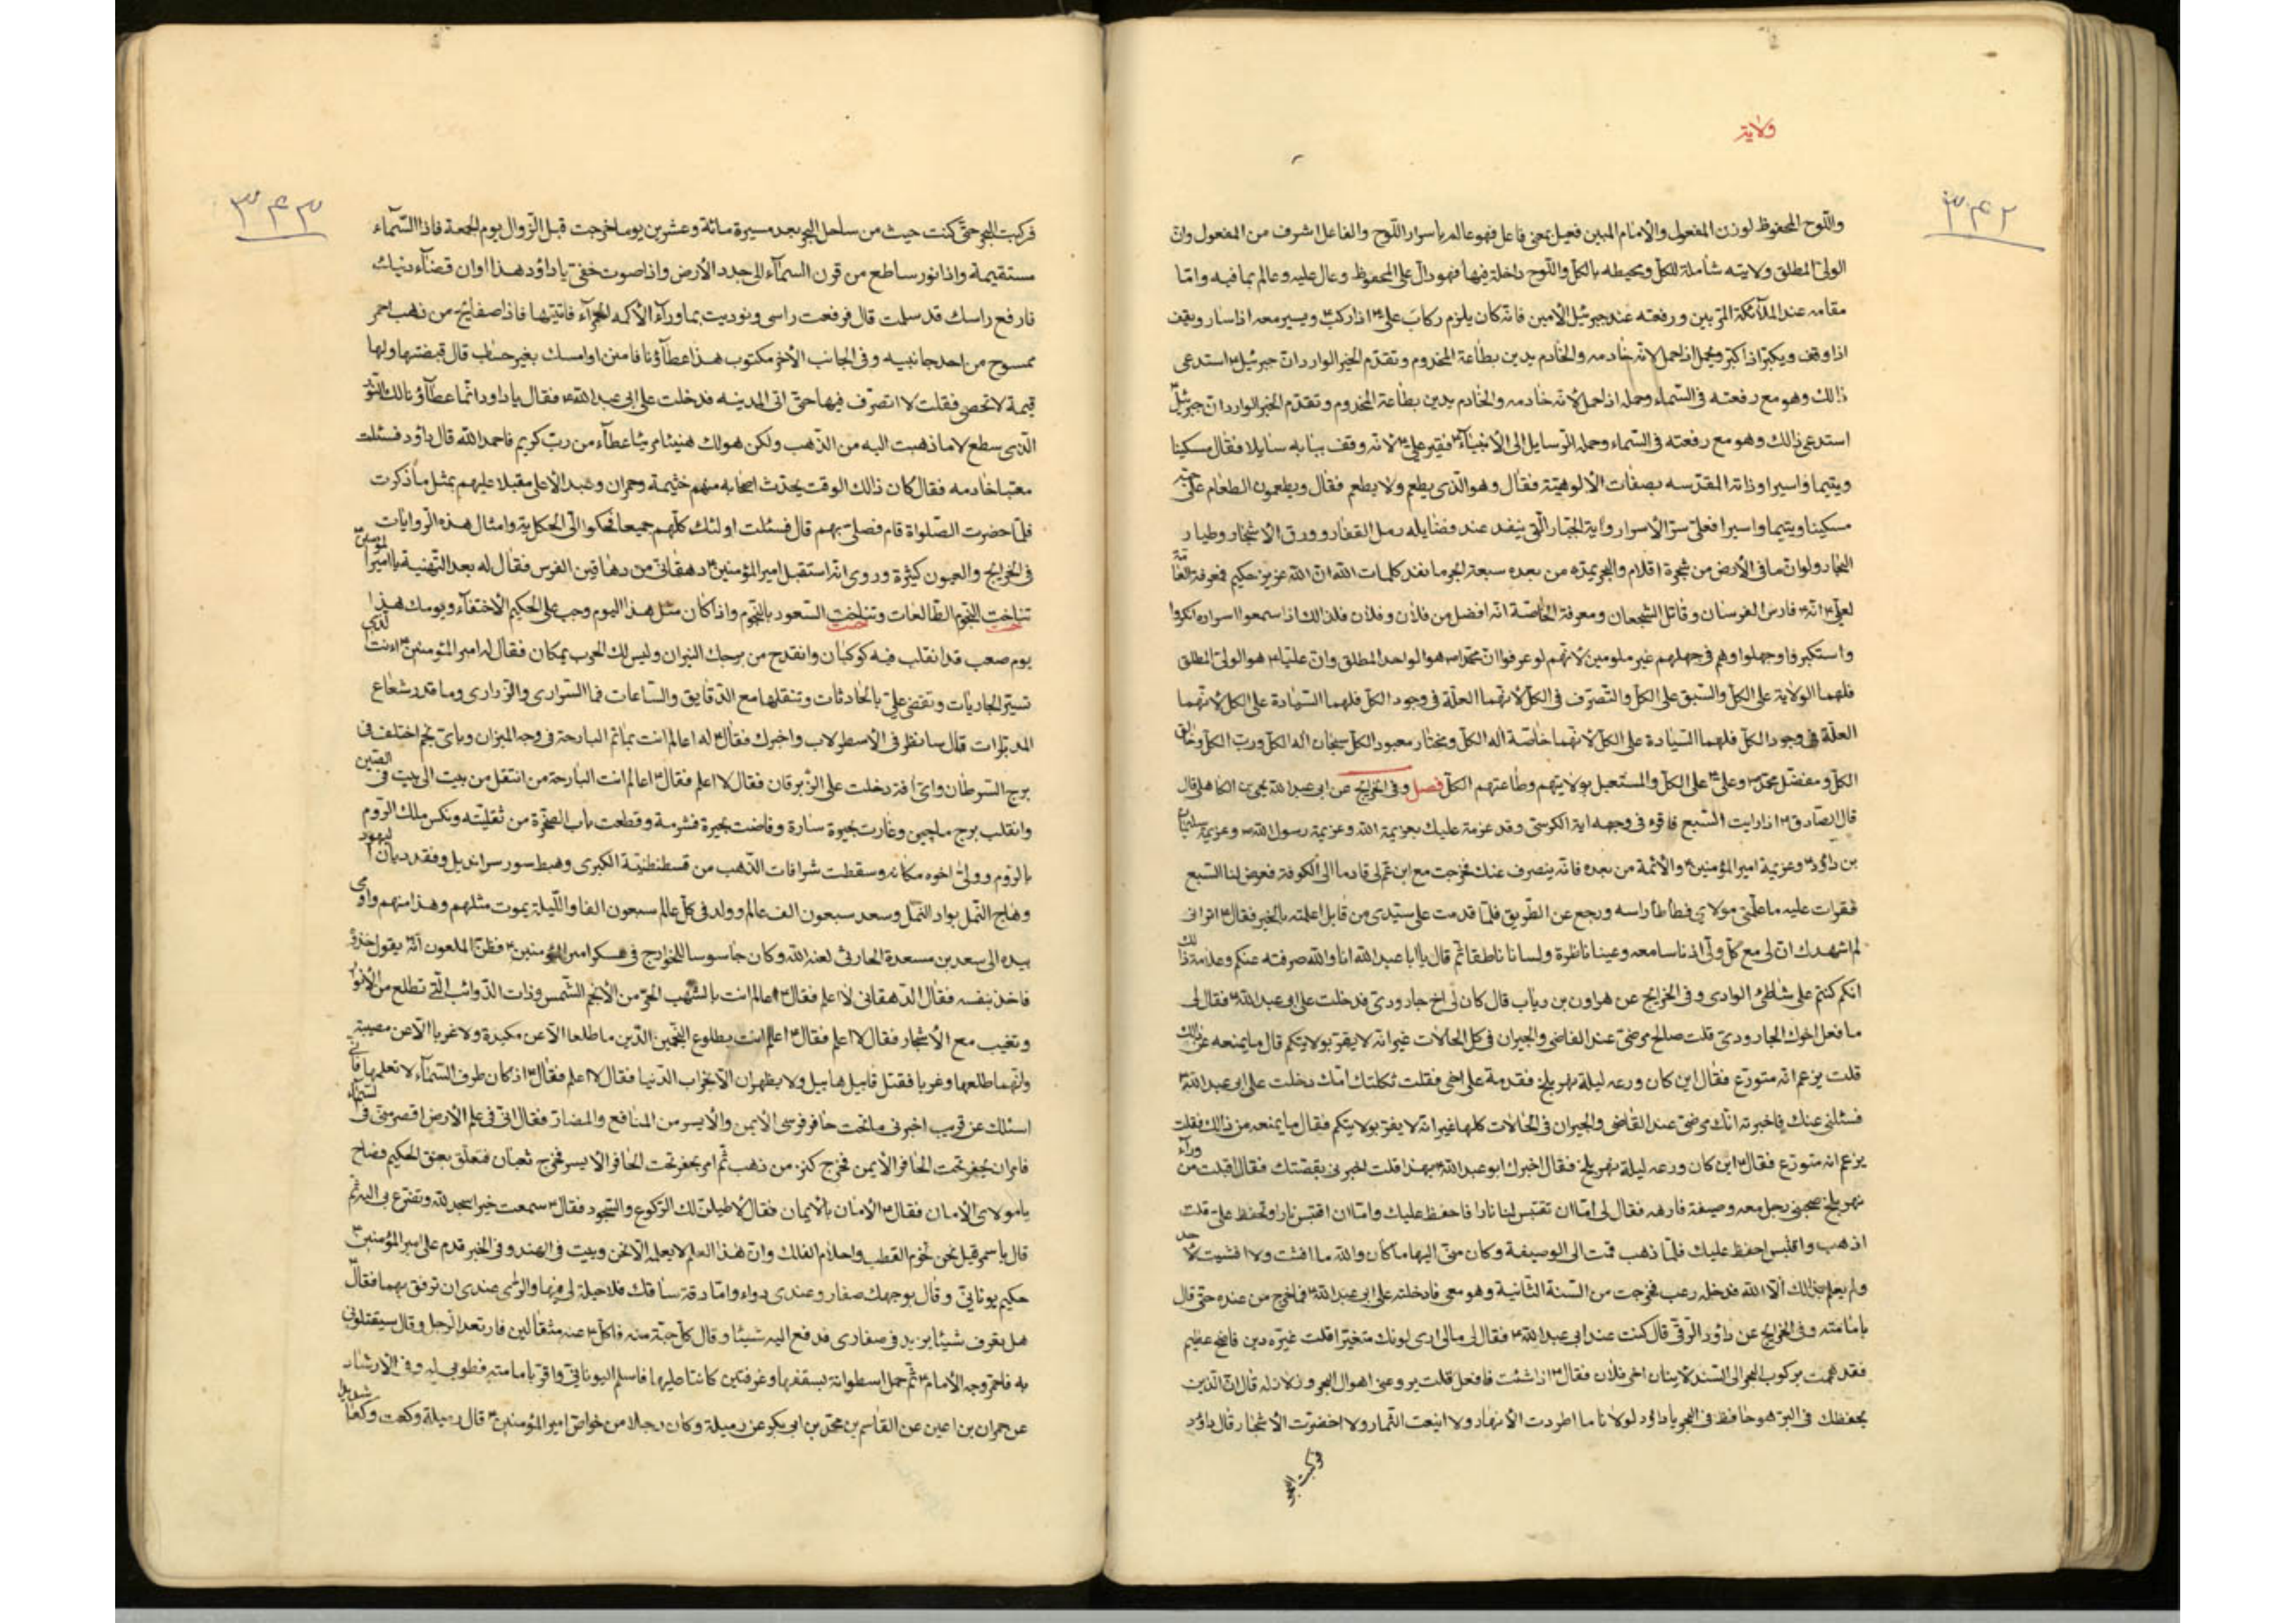 ولایة
۳۴۲
واللوح المحفوظ لوزن المفعول والأمام المبين فعيل بمعنى فاعل فهو عالم بأسرار اللوح والفاعل اشرف من المفعول وان
الولىّ المطلق ولايته شاملة للكلّ ومحيطه بالكلّ واللوح داخلة فيها فهو دالّ على المحفوظ وعال عليه وعالم بما فيه وامّا
مقامه عند الملآئكة المقربين ورفعته عند جبرئيل الأمين فانّه كان يلزم ركاب علىّ۴ اذا ركب۴ ويسير معه اذا سار ويقف
اذا وقف ويكبّر اذا كبّر ويحمل اذا حمل لانّه خادمه والخادم يدين بطاعة المخدوم وتقدّم الخبر الوارد انّ جبرئيل۴ استدعى
ذالك وهو مع رفعته فى السّماء وحمله اذا حمل لأنّه خادمه والخادم يدين بطاعة المخدوم وتقدّم الخبر الوارد انّ جبرئيل
استدعى ذالك وهو مع رفعته فى السّماء وحمله الرّسايل الى الأنبيآء۴ فقير علىّ۴ لأنّه وقف ببابه سايلا فقال مسكينا
ويتيما واسيرا وذاته المقدّسه بصفات الألوهيّة فقال وهو الّذى يطعم ولا يطعم فقال ويطعمون الطعام على حبّه
مسكينا ويتيما واسيرا فعلىّ سرّ الأسرار وآية الجبّار الّتى ينفد عند فضايله رمل القفار وورق الأشجار وطيار
البحار ولو انّ ما فى الأرض من شجرة اقلام والبحر يمدّه من بعده سبعة ابحر ما نفد كلمات الله انّ الله عزيز حكيم فمعرفة العامّة
لعلىّ۴ انّه فارس الفرسان وقاتل الشجعان ومعرفة الخاصّة انّه افضل من فلان وفلان فلذالك اذا سمعوا اسراره انكروا
واستكبروا وجهلوا وهم فى جهلهم غير ملومين لأنّهم لو عرفوا انّ محمّدا ص هو الواحد المطلق وانّ عليّا۴ هو الولىّ المطلق
فلهما الولاية على الكلّ والسّبق على الكلّ والتّصرّف فى الكلّ لانّهما العلّة فى وجود الكلّ فلهما السّيادة على الكلّ لأنّهما
العلّة فى وجود الكلّ فلهما السّيادة على الكلّ لأنّهما خاصّة اله الكلّ ومختار معبود الكلّ سبحان اله الكلّ وربّ الكلّ وخالق
الكلّ ومفضّل محمّد ص وعلىّ۴ على الكلّ والمستعبل بولايتهم وطاعتهم الكلّ فصل وفى الخرايج عن ابى عبدالله بن يحيى الكاهلى قال
قال الصادق۴ اذا رايت السّبع فاقره فى وجهه اية الكرسىّ وقد عزمة عليك بعزيمة الله وعزيمة رسول الله ص وعزيمة سليمان
بن داود۴ وعزيمة اميرالمؤمنين۴ والأئمّة من بعده فانّه ينصرف عنك فخرجت مع ابن عمّ لى قادما الى الكوفة فعرض لنا السّبع
فقرات عليه ما علّمنى مولاى فطأطأ راسه ورجع عن الطّريق فلمّا قدمت على سيّدى من قابل اعلمته بالخبر فقال۴ اترانى
لم اشهدك انّ لى مع كلّ ولىّ اذنا سامعه وعينا ناظرة ولسانا ناطقا ثمّ قال يا ابا عبدالله انا والله صرفته عنكم وعلامة ذالك
انكم كنتم على شاطئ الوادى وفى الخرايج عن هرون بن رياب قال كان لى اخ جارودىّ فدخلت على ابى عبدالله۴ فقال لى
ما فعل اخوك الجارودىّ قلت صالح مرضىّ عند القاضى والجيران فى كلّ الحالات غير انّه لا يقرّ بولايتكم قال ما يمنعه عن ذالك
قلت يزعم انّه متورّع فقال اين كان ورعه ليلة نهر بلخ فقدمة على اخى فقلت ثكلتك امّك دخلت على ابى عبدالله۴
فسئلنى عنك فاخبرته انّك مرضىّ عند القاضى والجيران فى الحالات كلها غير انّه لا يقرّ بولايتكم فقال ما يمنعه من ذالك فقلت
يزعم انه متورّع فقال۴ اين كان ورعه ليلة نهر بلخ فقال اخبرك ابو عبدالله۴ بهذا قلت اخبرنى بقصّتك فقال اقبلت من ورآء
نهر بلخ صحبنى رجل معه وصيفة فارهه فقال لى امّا ان تقتبس لنا نارا فاحفظ عليك وامّا ان اقتبس نارا وتحفظ علىّ قلت
اذهب واقتبس احفظ عليك فلمّا ذهب قمت الى الوصيفة وكان منّى اليها ما كان والله ما افشت ولا افشيت لأحد
ولم يعلم بذلك الّا الله فدخله رعب فخرجت من السّنة الثّانية وهو معى فادخلته على ابى عبدالله۴ فما خرج من عنده حتّى قال
بإمامته وفى الخرايج عن داود الرّقىّ قال كنت عند ابى عبدالله۴ فقال لى مالى ارى لونك متغيّرا قلت غيّره دين فاضح عظيم
فقد هممت بركوب البحر الى السّند لأتيان اخى فلان فقال۴ اذا شئت فافعل قلت يروعنى اهوال البحر وزلازله قال انّ الّذى
يحفظك فى البرّ هو حافظ فى البحر يا داؤد لولانا ما اطردت الأنهار ولا اينعت الثّمار ولا اخضرّت الأشجار قال داؤد
فركبت البحر
۳۴۳
فركبت البحر حتّى كنت حيث من ساحل البحر بعد مسيرة مائة وعشرين يوما خرجت قبل الزّوال يوم الجمعة فاذا السّمآء
مستقيمة واذا نور ساطع من قرن السّمآء الى جدد الأرض واذا صوت خفىّ ياداؤد هذا اوان قضآء دينك
فارفع راسك قد سلمت قال فرفعت راسى ونوديت بما ورآء الأكمه الحمرآء فاتيتها فاذا صفايح من ذهب احمر
ممسوح من احد جانبيه وفى الجانب الأخر مكتوب هذا عطآؤنا فامنن او امسك بغير حساب قال فقبضتها ولها
قيمة لا تحصى فقلت لا اتصرّف فيها حتّى اتى المدينه فدخلت على ابى عبدالله۴ فقال ياداود انّما عطآؤنا لك النّور
الّذى سطع لا ما ذهبت اليه من الذّهب ولكن هو لك هنيئا مريئا عطآء من ربّ كريم فاحمد الله قال داؤد فسئلت
معتبا خادمه فقال كان ذالك الوقت يحدّث اصحابه منهم خثيمة وحمران وعبد الأعلى مقبلا عليهم بمثل ما ذكرت
فلمّا حضرت الصّلواة قام فصلّى بهم قال فسئلت اولئك كلّهم جميعا فحكوا الّى الحكاية وامثال هذه الرّوايات
فى الخرايج والعيون كثيرة وروى انّه استقبل اميرالمؤمنين۴ دهقانىّ من دهاقين الفرس فقال له بعد التّهنية يا اميرالمؤمنين
تناحت النّجوم الطّالعات وتناحت السّعود بالنّحوم واذا كان مثل هذا اليوم وجب على الحكيم الأختفآء ويومك هذا
يوم صعب قد انقلب فيه كوكبان وانقدح من برجك النيران وليس لك الحرب بمكان فقال له اميرالمؤمنين۴ اءنت الّذى
تسيّر الجاريات وتقضى علىّ بالحادثات وتنقلها مع الدّقايق والسّاعات فما السّرارى والزّرارى وما قدر شعاع
المدبّرات قال سانظر فى الأسطرلاب واخبرك فقال۴ له اعالم انت بما تمّ البارحة فى وجه الميزان وباىّ نجم اختلف فى
برج السّرطان واىّ افة دخلت على الزّبرقان فقال لا اعلم فقال۴ اعالم انت البارحة من انتقل من بيت الى بيت فى الصّين
وانقلب برج ماچين وغارت بحيرة سارة وفاضت بحيرة فشرمة وقطعت باب الصّخرة من ثقليّته ونكس ملك الرّوم
بالروم وولىّ اخوه مكانه وسقطت شرافات الذّهب من قسطنطنيّة الكبرى وهبط سور سرانديل وفقد ديان اليهود
وهاج النّمل بواد النّمل وسعد سبعون الف عالم وولد فى كلّ عالم سبعون الفا واللّيلة يموت مثلهم وهذا منهم واومى
بيده الى سعد بن مسعدة الحارثى لعنه الله وكان جاسوسا للخوارج فى عسكر اميرالمؤمنين۴ فظنّ الملعون انّه يقول خذوه
فاخذ بنفسه فقال الدّهقانى لا اعلم فقال۴ اعالم انت بالشّهب الحرّ من الأنجم الشّمس وذات الذّوائب الّتى تطلع من الأنوار
وتغيب مع الأشجار فقال لا اعلم فقال۴ اعالم انت بطلوع النّجمين الّذين ما طلعا الّا عن مكيدة ولا غربا الّا عن مصيبة
وانّهما طلعا وغربا فقتل قابيل هابيل ولا يظهران الّا بخراب الدّنيا فقال لا اعلم فقال۴ اذ كان طرف السّمآء لا تعلمها فانّى
اسئلك عن قريب اخبرنى ما تحت حافر فرسى الأيمن والأيسر من المنافع والمضارّ فقال انّى فى علم الأرض اقصر منّى فى السّمآء
فامر ان يحفر تحت الحافر الأيمن فخرج كنز من ذهب ثمّ امر بحفر تحت الحافر الأيسر فخرج ثعبان فتعلّق بعنق الحكيم فصاح
يا مولاى الأمان فقال۴ الأمان بالأيمان فقال لأطيلنّ لك الرّكوع والسّجود فقال۴ سمعت خيرا اسجد لله وتضرّع بى اليه ثمّ
قال يا سمرقيل نحن نجوم القطب واعلام الفلك وانّ هذا العلم لا يعلمه الّا نحن وبيت فى الهند وفى الخبر قدم على اميرالمؤمنين۴
حكيم يونانىّ وقال بوجهك صفار وعندى دواء وامّا دقّة ساقك فلا حيلة لى فيها والرّاى عندى ان ترفق بهما فقال
هل يعرف شيئا يزيد فى صفارى فدفع اليه شيئا وقال كلّ حبّة منه فاكل۴ منه مثقالين فارتعد الرّجل وقال سيقتلونى
به فاحمرّ وجه الأمام۴ ثمّ حمل اسطوانة بسقفها وغرفتين كانتا عليها فاسلم اليونانىّ واقرّ بامامته فطوبى له وفى الأرشاد
عن حمران بن اعين عن القاسم بن محمّد بن ابى بكر عن رميلة وكان رجلا من خواصّ اميرالمؤمنين۴ قال رميلة وعكت وعكا شديدا